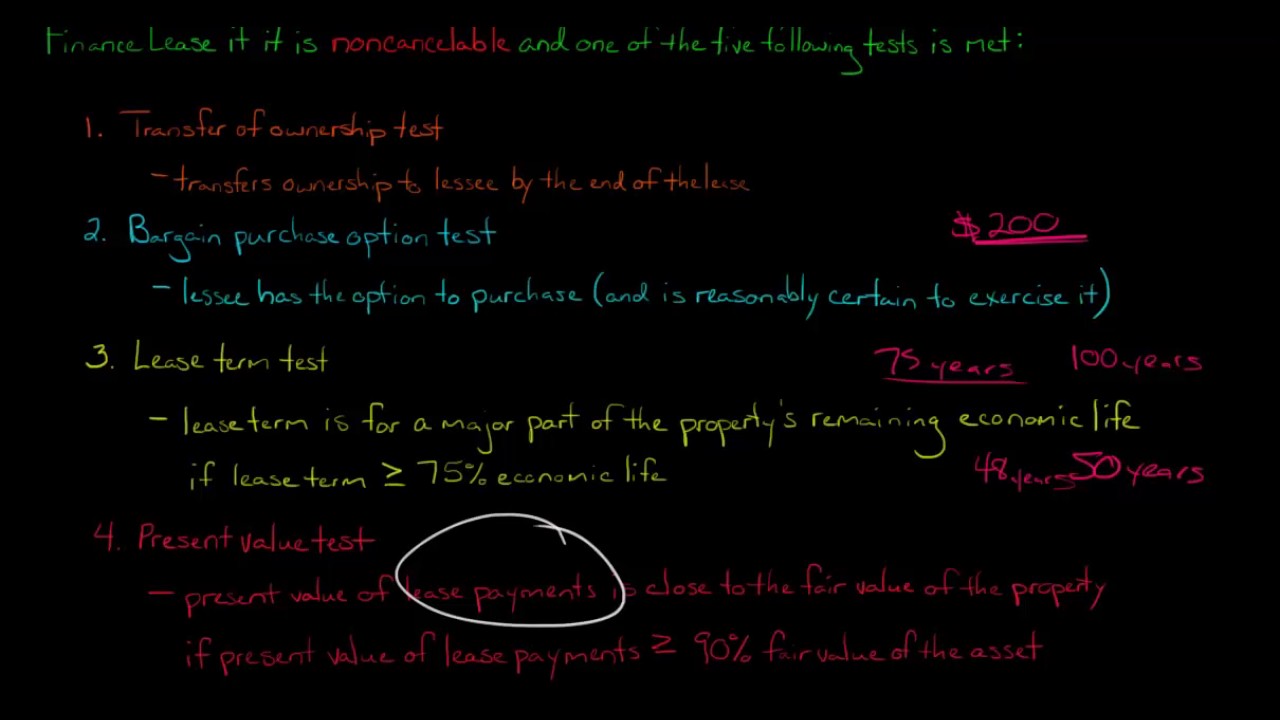 Finance Lease if it is noncancelable and one of the five following tests is met:
1. Transfer of ownership test
- transfers ownership to lessee by the end of the lease
2. Bargain purchase option test
$200
- lessee has the option to purchase (and is reasonably certain to exercise it)
3. Lease term test
75 years 100 years
- lease term is for a major part of the property's remaining economic life
if lease term ≥ 75% economic life
48 years 50 years
4. Present value test
- present value of lease payments is close to the fair value of the property
if present value of lease payments ≥ 90% fair value of the asset